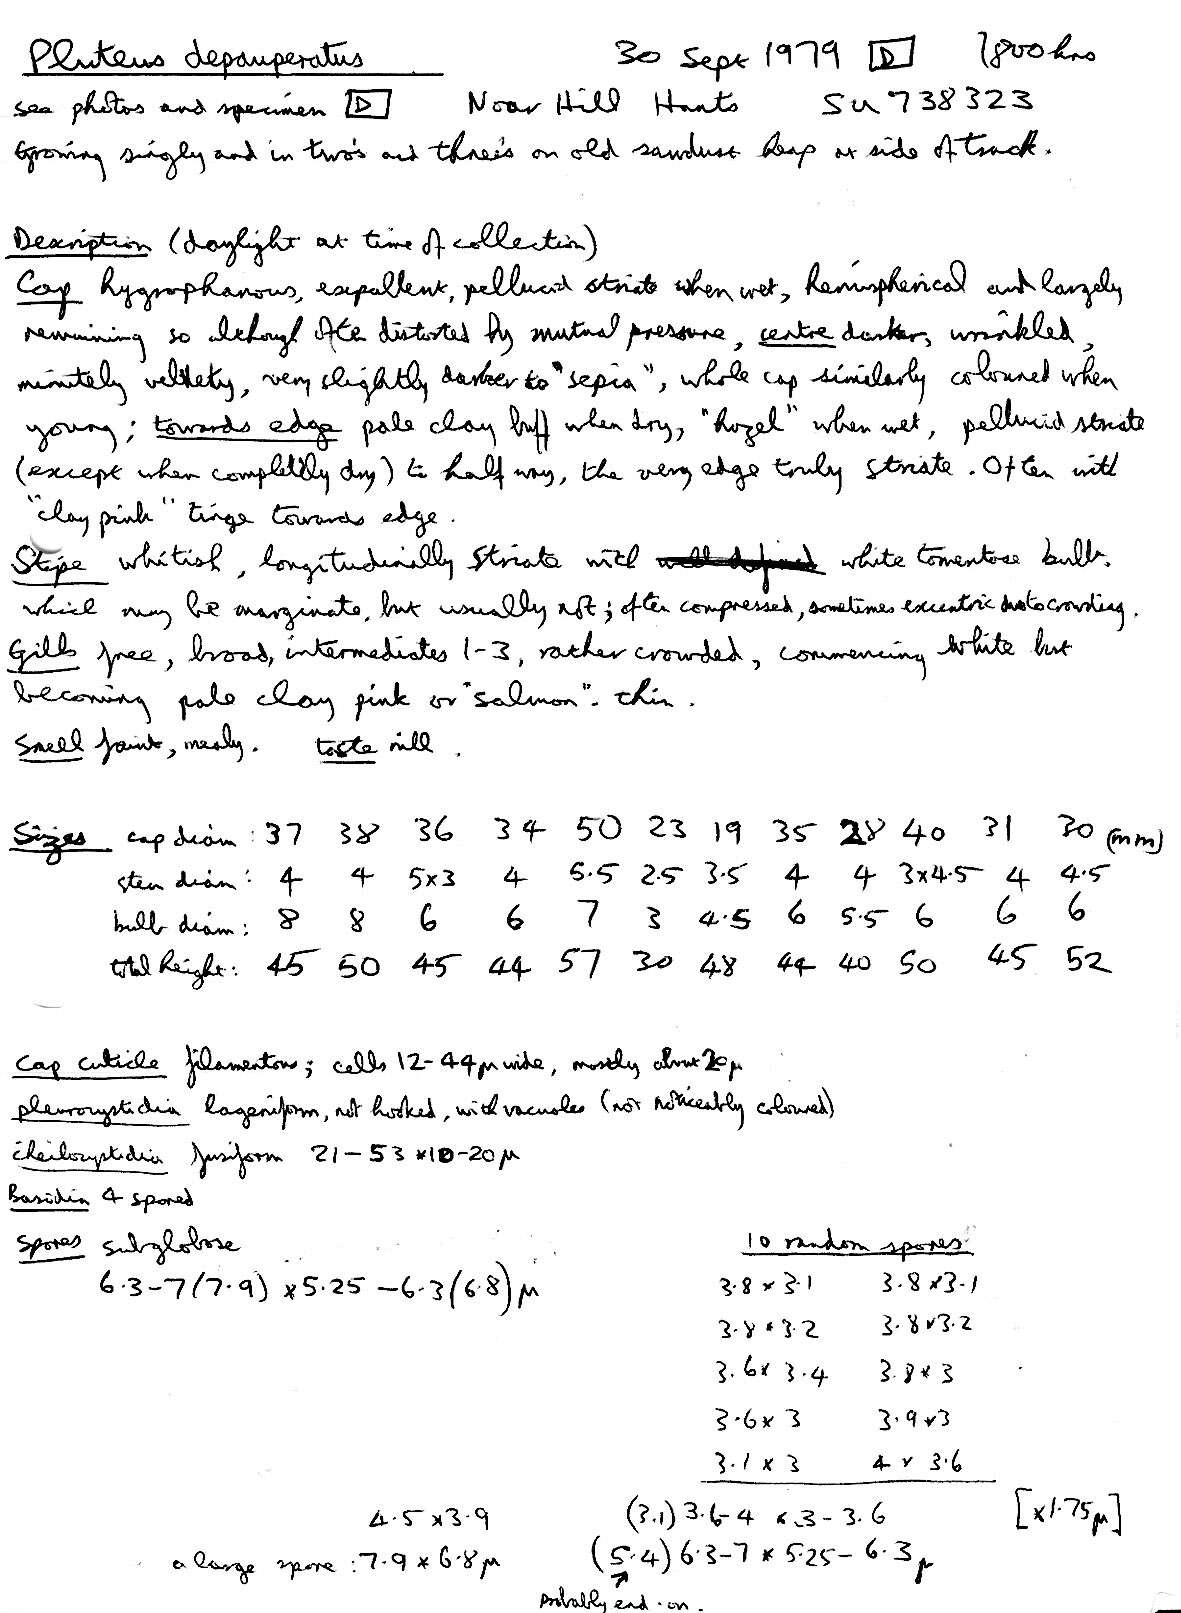 Pluteus depauperatus 30 Sept 1979 D 1800hrs
see photos and specimen D Noar Hill Hants SU738323
Growing singly and in two's and three's on old sawdust heap at side of track.
Description (daylight at time of collection)
Cap hygrophanous, expallent, pellucid striate when wet, hemispherical and largely
remaining so although often distorted by mutual pressure, centre darker, wrinkled,
minutely velvety, very slightly darker to "sepia", whole cap similarly coloured when
young; towards edge pale clay buff when dry, "hazel" when wet, pellucid striate
(except when completely dry) to half way, the very edge truly striate. Often with
"clay pink" tinge towards edge.
Stipe whitish, longitudinally striate with well defined white tomentose bulb.
which may be marginate, but usually not; often compressed, sometimes excentric due to crowding.
Gills free, broad, intermediates 1-3, rather crowded, commencing white but
becoming pale clay pink or "salmon". thin.
Smell faint, mealy. taste mill.
Sizes cap diam: 37 38 36 34 50 23 19 35 28 40 31 30 (mm)
stem diam: 4 4 5x3 4 5.5 2.5 3.5 4 4 3x4.5 4 4.5
bulb diam: 8 8 6 6 7 3 4.5 6 5.5 6 6 6
total height: 45 50 45 44 57 30 48 44 40 50 45 52
Cap cuticle filamentous; cells 12-44μ wide, mostly about 20μ
pleurocystidia lageniform, not hooked, with vacuoles (not noticeably coloured)
cheilocystidia fusiform 21-53 x 10-20μ
Basidia 4 spored
Spores subglobose 10 random spores
6.3-7(7.9) x 5.25-6.3(6.8)μ 3.8 x 3.1 3.8 x 3.1
3.8 x 3.2 3.8 x 3.2
3.6 x 3.4 3.8 x 3
3.6 x 3 3.9 x 3
3.1 x 3 4 x 3.6
4.5 x 3.9 (3.1) 3.6-4 x 3-3.6 [x1.75μ]
a large spore: 7.9 x 6.8μ (5.4) 6.3-7 x 5.25-6.3μ
probably end-on.